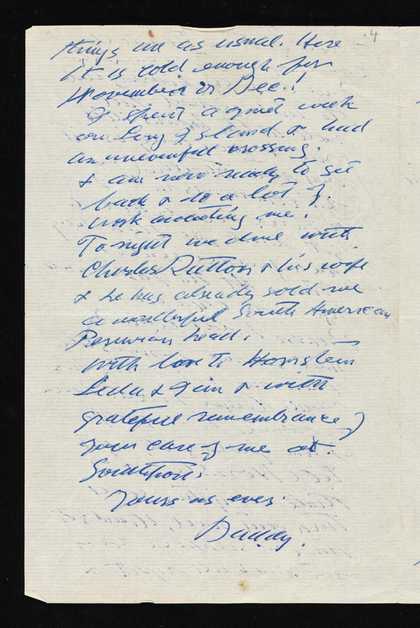 4
things are as usual. Here
it is cold enough for
November or Dec.!
I spent a quiet week
on Long Island & had
an uneventful crossing.
& am now ready to get
back & to a lot of
work awaiting me.
Tonight we dine with
Charles Ratton & his wife
& he has already sold me
a wonderful South American
Peruvian head.
With love to
Leda & Jim & with
grateful remembrance of
your care of me at
Yours as ever.